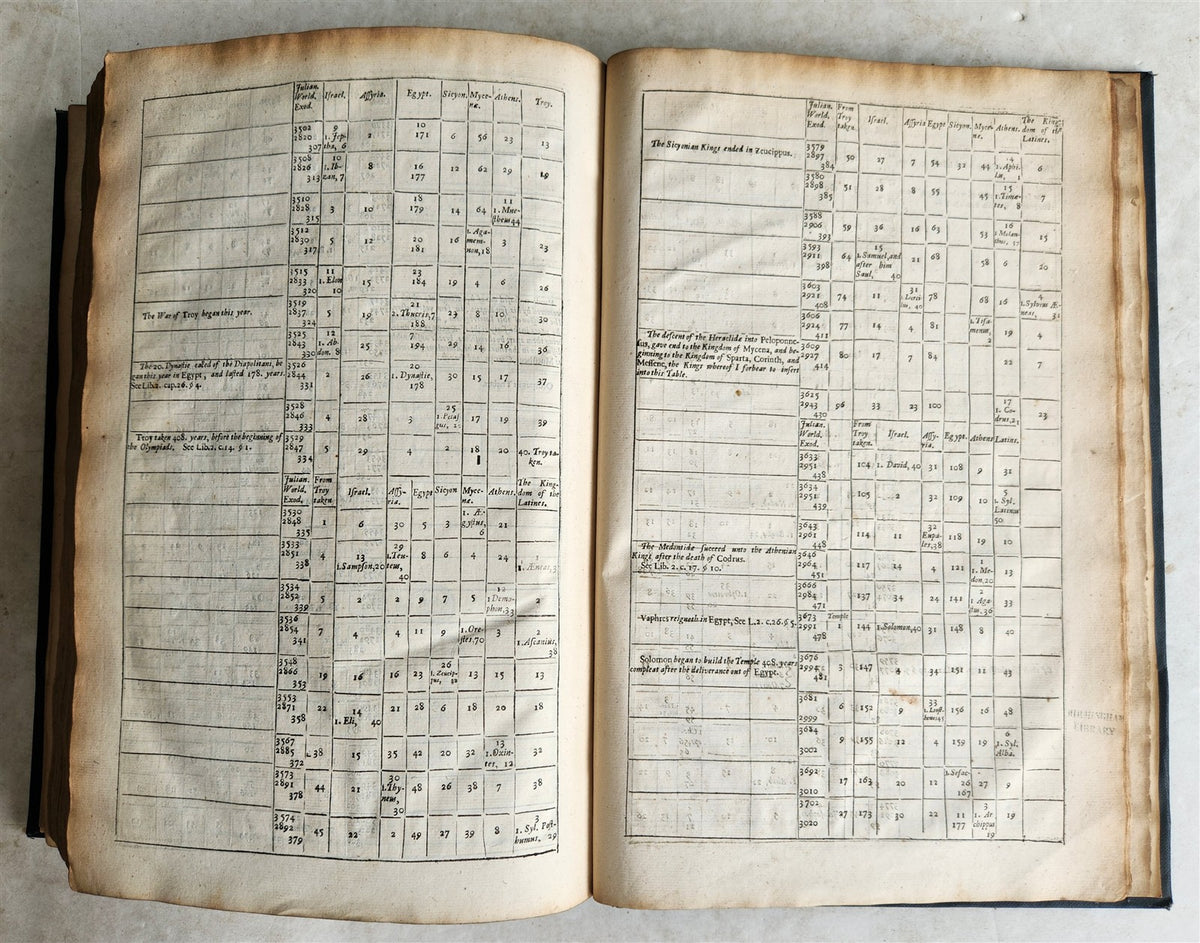 Julian. World. Exod. Israel. Assyria. Egypt. Sicyon. Mycenæ. Athens. Troy.
3502 9 10
2820 1. Jep- 2 171 6 56 23 13
307 tha, 6
3508 10
2826 1. Ib- 8 16 12 62 29 19
313 zan, 7 177
3510 18 11
2828 3 10 179 14 64 1. Mne-
315 stheus 44
3512 1. Aga-
2830 5 12 20 16 mem- 3 23
317 181 non, 18
3515 11 23
2833 1. Elon 15 184 19 4 6 26
320 10
The War of Troy began this year.
3519 21
2837 5 19 2. Thuoris, 7 23 8 10 30
324 188
3525 12 7
2843 1. Ab- 25 194 29 14 16 36
330 don. 8
The 20. Dynastie called of the Diapolitans, be-
gan this year in Egypt, and lasted 178. years.
See Lib. 2. cap. 26. § 4.
3526 20
2844 2 26 1. Dynastie, 30 15 17 37
331 178
3528 25
2846 4 28 3 1. Pelas- 17 19 39
333 gus, 20
Troy taken 408. years, before the beginning of
the Olympiads. See Lib. 2. c. 14. § 1.
3529
2847 5 29 4 2 18 20 40. Troy ta-
334 1 ken.
Julian. World. Exod. From Troy taken Israel. Assyria. Egypt Sicyon Mycenæ. Athens. The Kingdom of the Latines.
3530 1. Æ-
2848 1 6 30 5 3 gystus, 21
335 6
3533 29
2851 4 13 1. Teu- 8 6 4 24
338 1. Sampson, 20 teus, 1. Æneas, 3
40
3534 12
2852 5 2 2 9 7 5 1 Demo- 2
339 phon, 33
3536
2854 7 4 4 11 9 1. Ore- 3 2
341 stes. 70 1. Ascanius,
38
3548 26
2866 19 16 16 23 1. Zeucip- 13 15 13
353 pus, 32
3553
2871 22 14 21 28 6 18 20 18
358 1. Eli, 40
3567 13
2885 38 15 35 42 20 32 1. Oxin- 32
372 tes, 12
3573 30
2891 44 21 1. Thy- 48 26 38 7 38
378 neus,
30
3574 3
2892 45 22 2 49 27 39 8 1. Syl. Post-
379 humus, 29
Julian. World. Exod. From Troy taken. Israel. Assyria Egypt. Sicyon. Mycenæ. Athens. The Kingdom of the Latines.
The Sicyonian Kings ended in Zeucippus.
3579 14
2897 50 27 7 54 32 44 1. Aphi- 6
384 das, 1
3580 15
2898 51 28 8 55 45 1. Timæ- 7
385 tes, 8
3588 16
2906 59 36 16 63 53 1 Melan- 15
393 thus, 37
3593 15
2911 64 1. Samuel, and 21 68 58 6 20
398 after him
Saul, 40
3603 31 4
2921 74 11 78 68 16 1. Sylvius Æ-
408 40 neas, 31
3606
2924 77 14 4 81 1. Tisa- 19 4
411 menus,
The descent of the Heraclidæ into Peloponne-
sus, gave end to the Kingdom of Mycena, and be-
ginning to the Kingdom of Sparta, Corinth, and
Messene, the Kings whereof I forbear to insert
into this Table.
3609
2927 80 17 7 84 22 7
414
3625 17
2943 96 33 23 100 1. Co- 23
430 drus, 21
Julian. World. Exod. From Troy taken. Israel. Assyria. Egypt. Athens Latins.
3633
2951 104 1. David, 40 31 108 9 31
438
3634 5
2951 105 2 32 109 10 1. Syl.
439 Latinus
50
3643 32
2961 114 11 Eupa- 118 19 10
448 les, 38
The Medontidæ succeed unto the Athenian
Kings after the death of Codrus.
See Lib. 2. c. 17. § 10.
3646 1
2964 117 14 4 121 1. Me- 13
451 don, 20
3666 2
2984 137 34 24 141 1 Aga- 33
471 stus. 36
Vaphres reigneth in Egypt, See L. 2. c. 26. § 5.
3673 Temple
2991 1 144 1. Solomon, 40 31 148 8 40
478
Solomon began to build the Temple 408. years
compleat after the deliverance out of Egypt.
3676
2994 3 147 4 34 151 11 43
481
3681 33
6 152 9 156 16 48
2999
3684 6
9 155 12 4 159 19 1. Syl.
3002 Alba.
3692 1. Sesac-
17 163 20 12 26 27 9
3010 167
3702 3
27 173 30 22 11 1. Ar 19
3020 177 chippus
19
BIRMINGHAM
LIBRARY